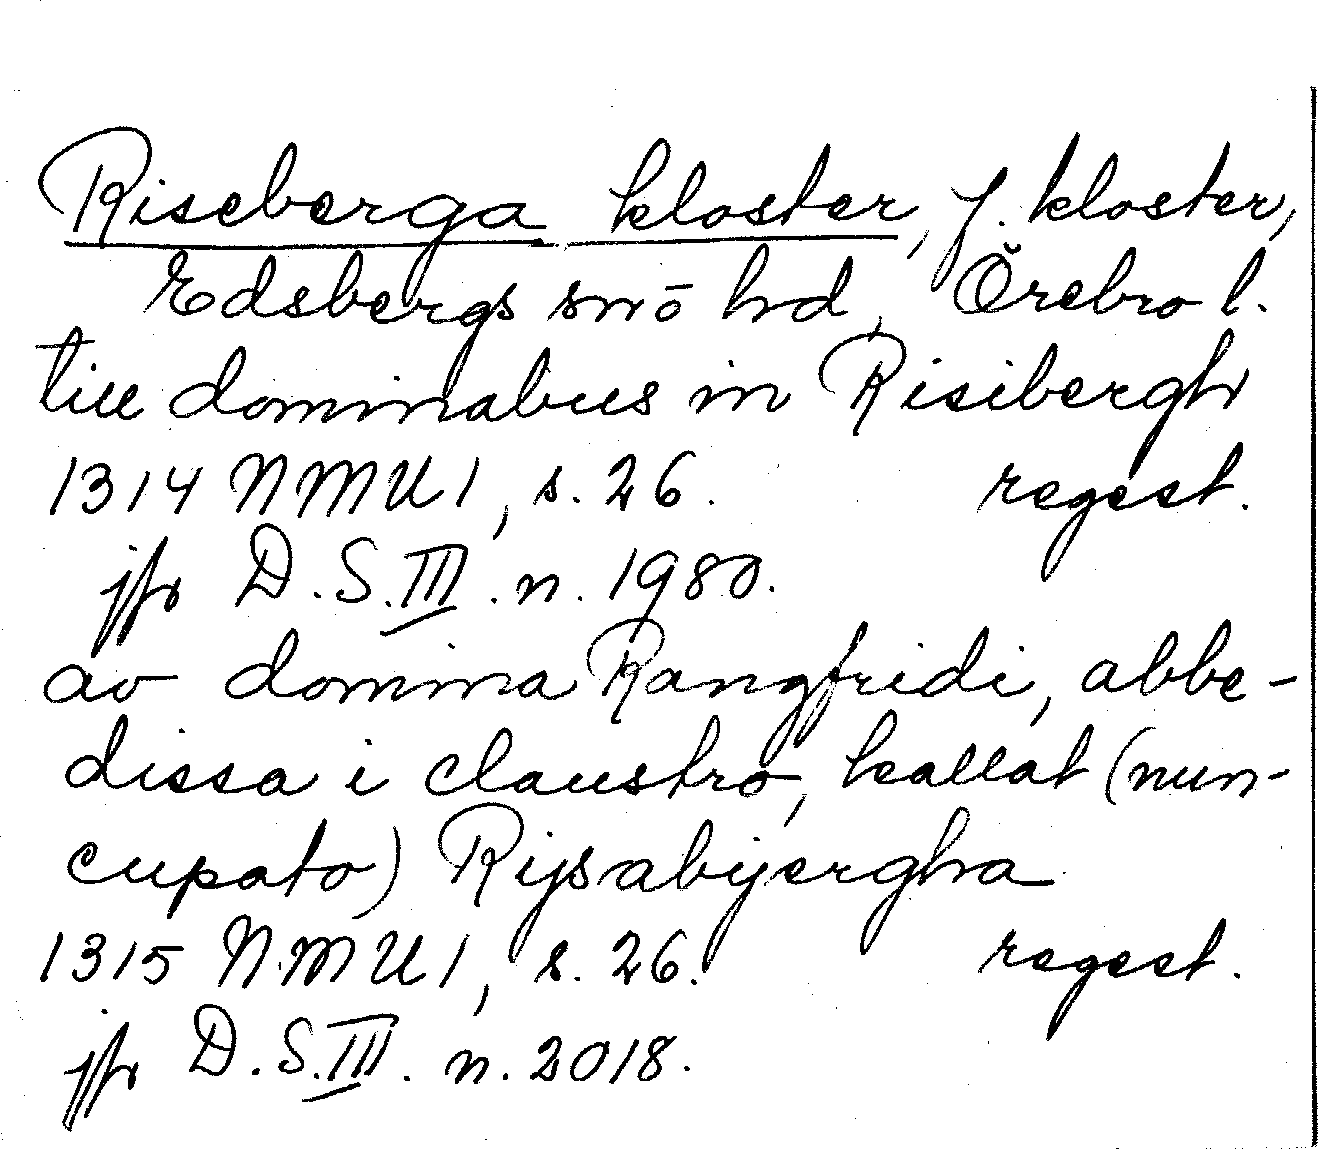 Riseberga kloster, f. kloster,
Edsbergs snö hd, Örebro l.
till dominabus in Risibergh
1314 NMU 1, s. 26. regest.
jfr D.S. III. n. 1980.
av domina Rangfridi, abbe-
dissa i claustro, kallat (nun-
cupato) Rijsabijergha
1315 NMU 1, s. 26. regest.
jfr D.S. III. n. 2018.